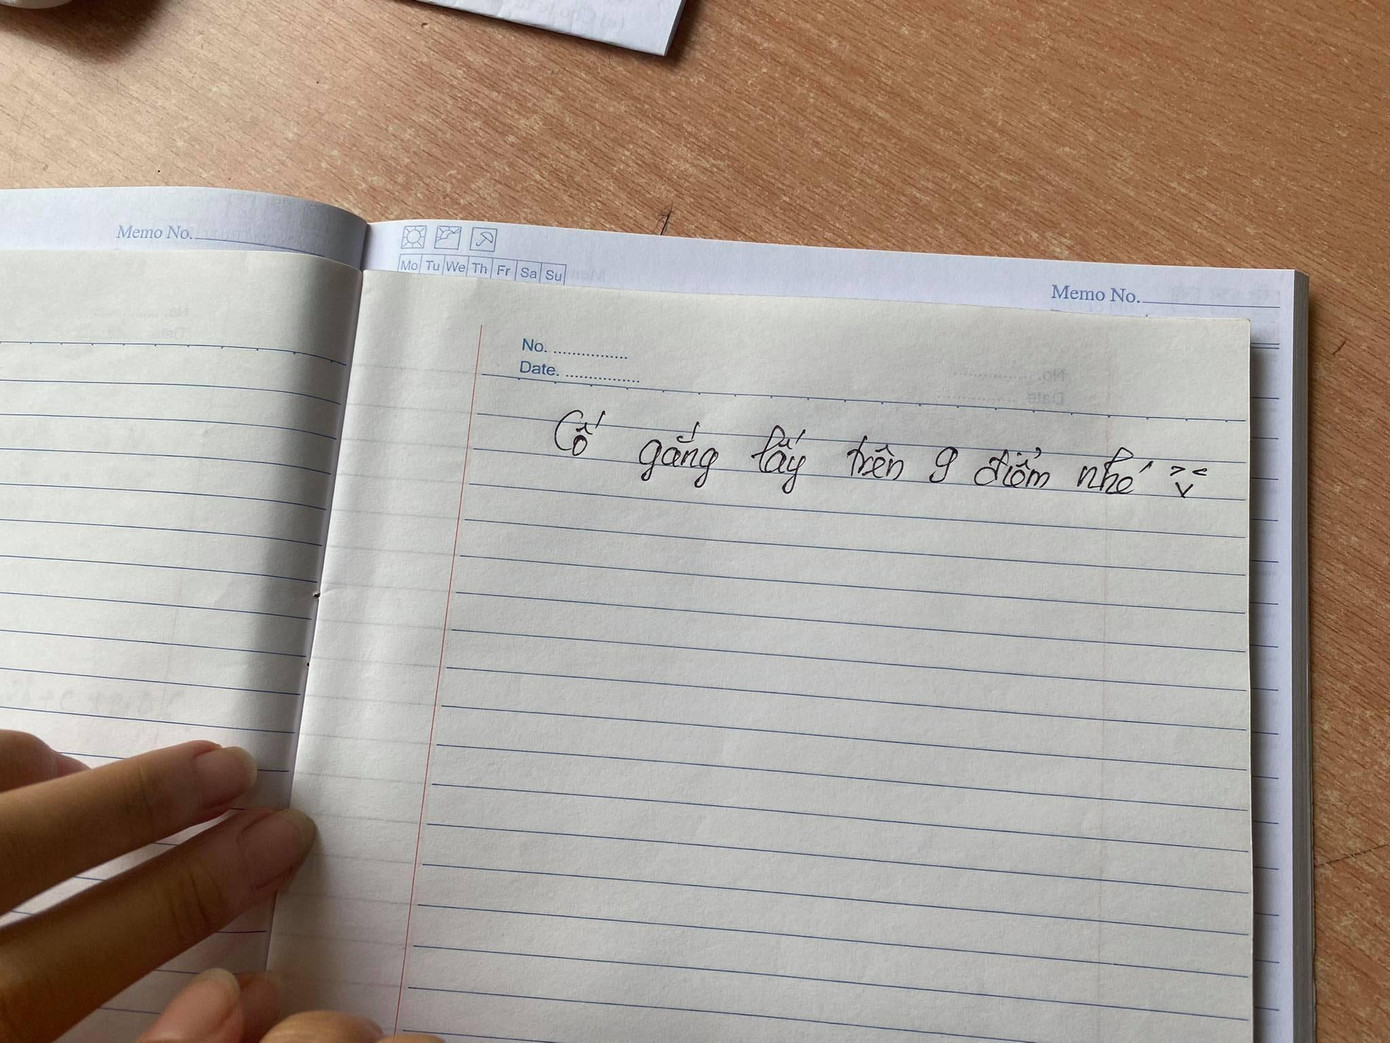 Memo No.
Mo Tu We Th Fr Sa Su
Memo No.
No.
Date.
Cố gắng lấy trên 9 điểm nhé